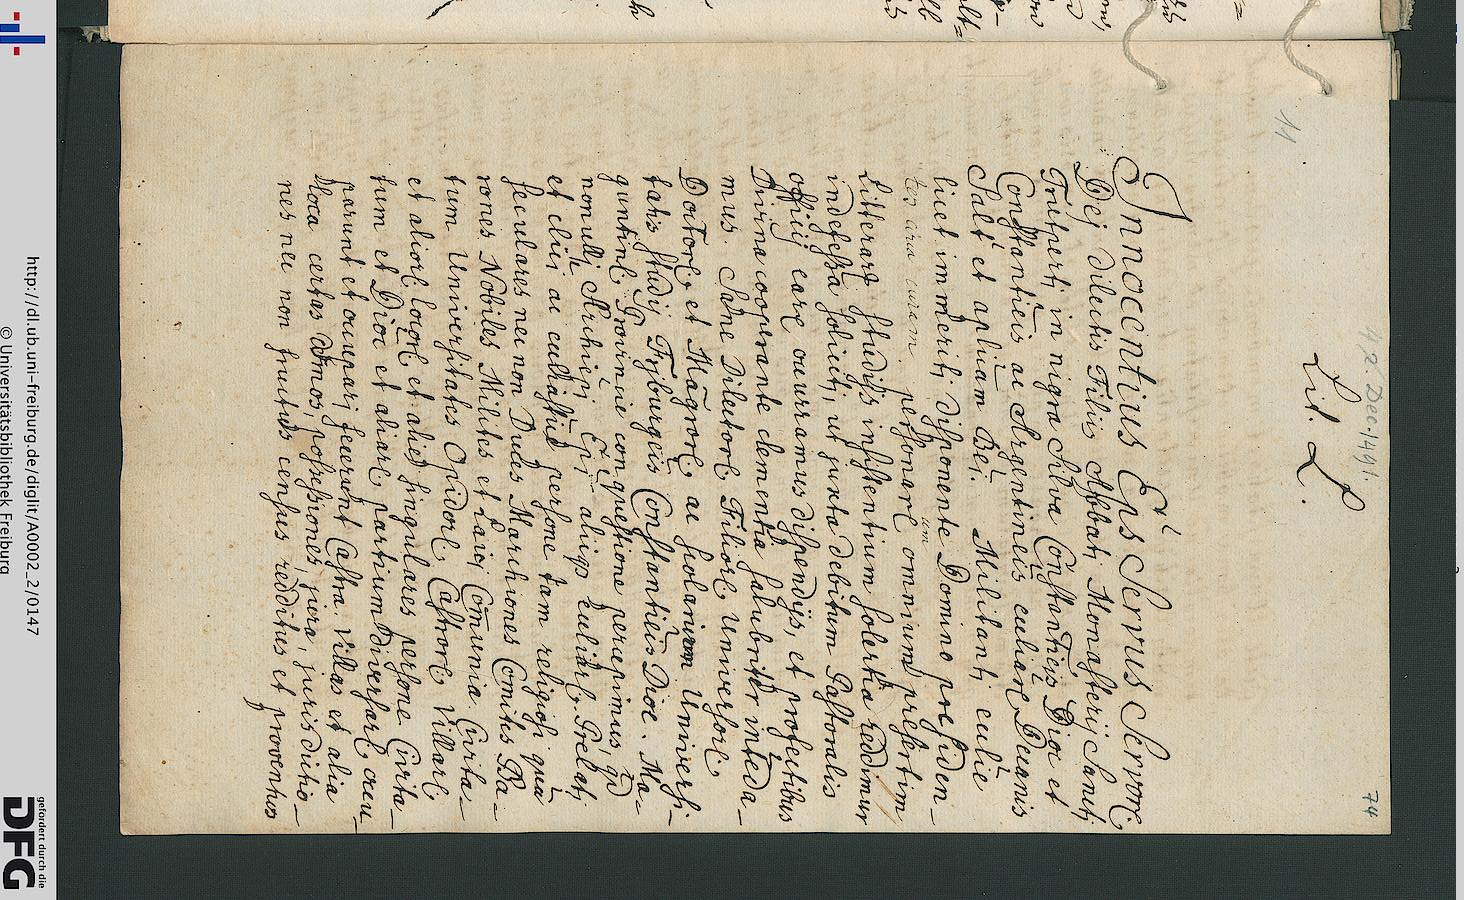 74
12. Dec. 1491.
Lit. L.
11
Innocentius Eps Servus Servorꝭ
Dej dilectis Filiis Abbati Monasterij Sanctj
Trutpertj in nigra Silva Constantieñ Dioc et
Constantieñ ac Argentineñ eccliarꝭ Decanis
Saltem et aplicam Beñ. Militantj ecclie
licet immeritj disponente Domino presiden-
tes circa curam personarꝭ omnium presertim
um
Litterarꝭ studijs insistentium solertia reddimur
indefessa solicitj, ut juxta debitum Pastoralis
officij earꝭ occurramus dispendijs, et profectibus
Divina cooperante clementia salubriter intenda-
mus. Sane Dilectorꝭ Filiorꝭ universorꝭ
Doctorꝭ et Magrorꝭ ac scolarium Universi-
tatis studij Fryburgeñ Constantieñ Dioc. Ma-
guntinꝭ Provincie conquestione percepimus qd
nonullj Archiepi Epi aliiqꝫ eccliarꝭ Prelatj
et clici ac ecclastice persone tam religiosi quam
seculares nec non Duces Marchiones Comites Ba-
rones Nobiles Milites et Laicj Comunia Civita-
tum Universitates Opidorꝭ Castrorꝭ villarꝭ
et aliorꝭ locorꝭ et alie singulares persone Civita-
tum et Dioc et aliarꝭ partium diversarꝭ occu-
parunt et occuparj fecerunt Castra villas et alia
loca certas domos, possessiones, jura, jurisdictio-
nes nec non fructus census redditus et proventus
http://dl.ub.uni-freiburg.de/diglit/A0002_2/0147
© Universitätsbibliothek Freiburg
gefördert durch die
DFG